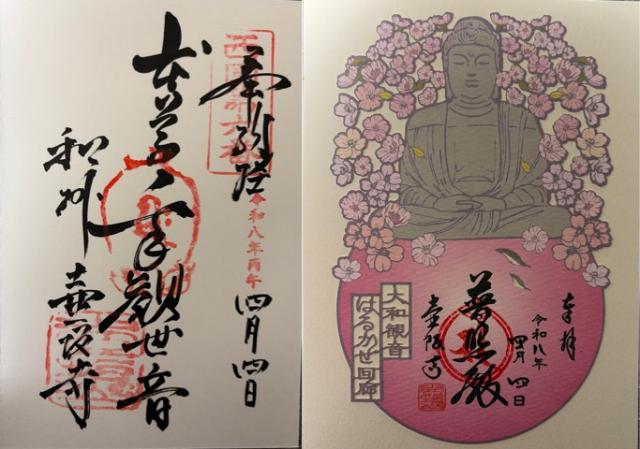 西国第六番
令和八年丙午
四月四日
千手觀世音
和州
壷阪寺
奉拝
令和八年
四月四日
普照殿
壷阪寺
大和観音
はるかぜ回廊